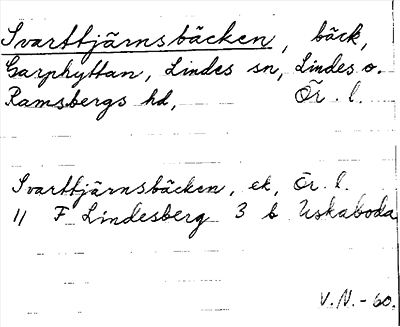 Svarttjärnsbäcken, bäck,
Garphyttan, Lindes sn, Lindes o.
Ramsbergs hd, Ör. l.
Svarttjärnsbäcken, ek, Ör. l.
11 F Lindesberg 3 b Uskaboda
V.N.-60.